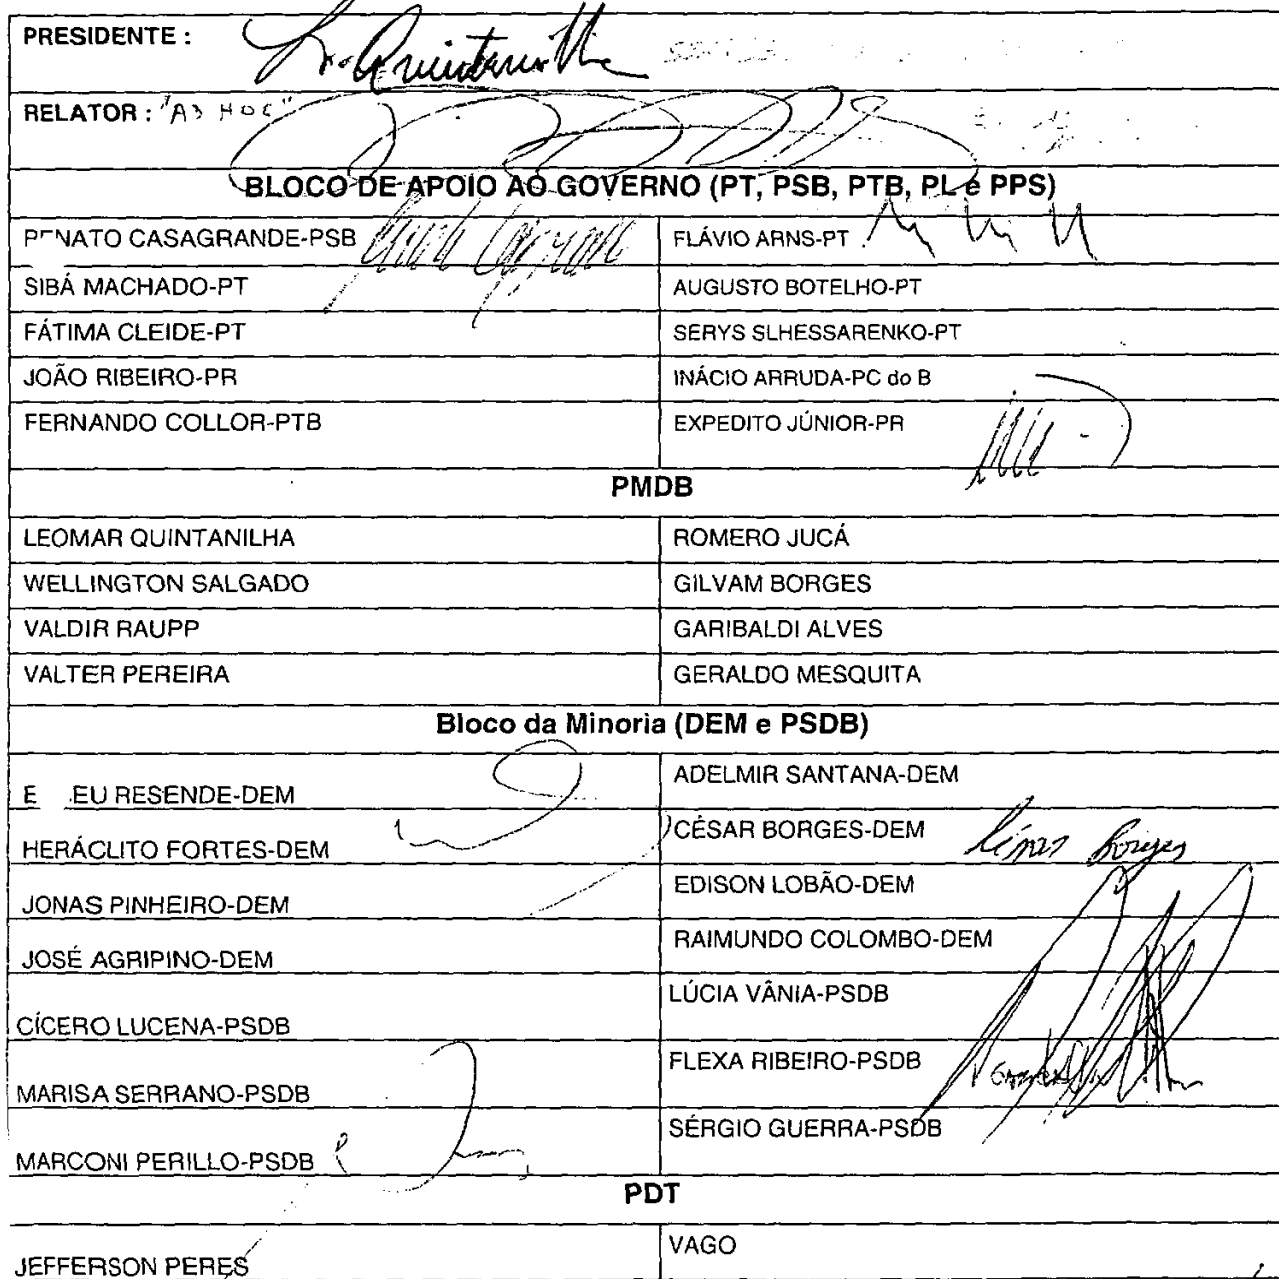 PRESIDENTE : L. Quintanilha
RELATOR : "AD HOC"
BLOCO DE APOIO AO GOVERNO (PT, PSB, PTB, PL e PPS)
RENATO CASAGRANDE-PSB FLÁVIO ARNS-PT
SIBÁ MACHADO-PT AUGUSTO BOTELHO-PT
FÁTIMA CLEIDE-PT SERYS SLHESSARENKO-PT
JOÃO RIBEIRO-PR INÁCIO ARRUDA-PC do B
FERNANDO COLLOR-PTB EXPEDITO JÚNIOR-PR
PMDB
LEOMAR QUINTANILHA ROMERO JUCÁ
WELLINGTON SALGADO GILVAM BORGES
VALDIR RAUPP GARIBALDI ALVES
VALTER PEREIRA GERALDO MESQUITA
Bloco da Minoria (DEM e PSDB)
E EU RESENDE-DEM ADELMIR SANTANA-DEM
HERÁCLITO FORTES-DEM CÉSAR BORGES-DEM César Borges
JONAS PINHEIRO-DEM EDISON LOBÃO-DEM
JOSÉ AGRIPINO-DEM RAIMUNDO COLOMBO-DEM
CÍCERO LUCENA-PSDB LÚCIA VÂNIA-PSDB
MARISA SERRANO-PSDB FLEXA RIBEIRO-PSDB
MARCONI PERILLO-PSDB SÉRGIO GUERRA-PSDB
PDT
JEFFERSON PERES VAGO